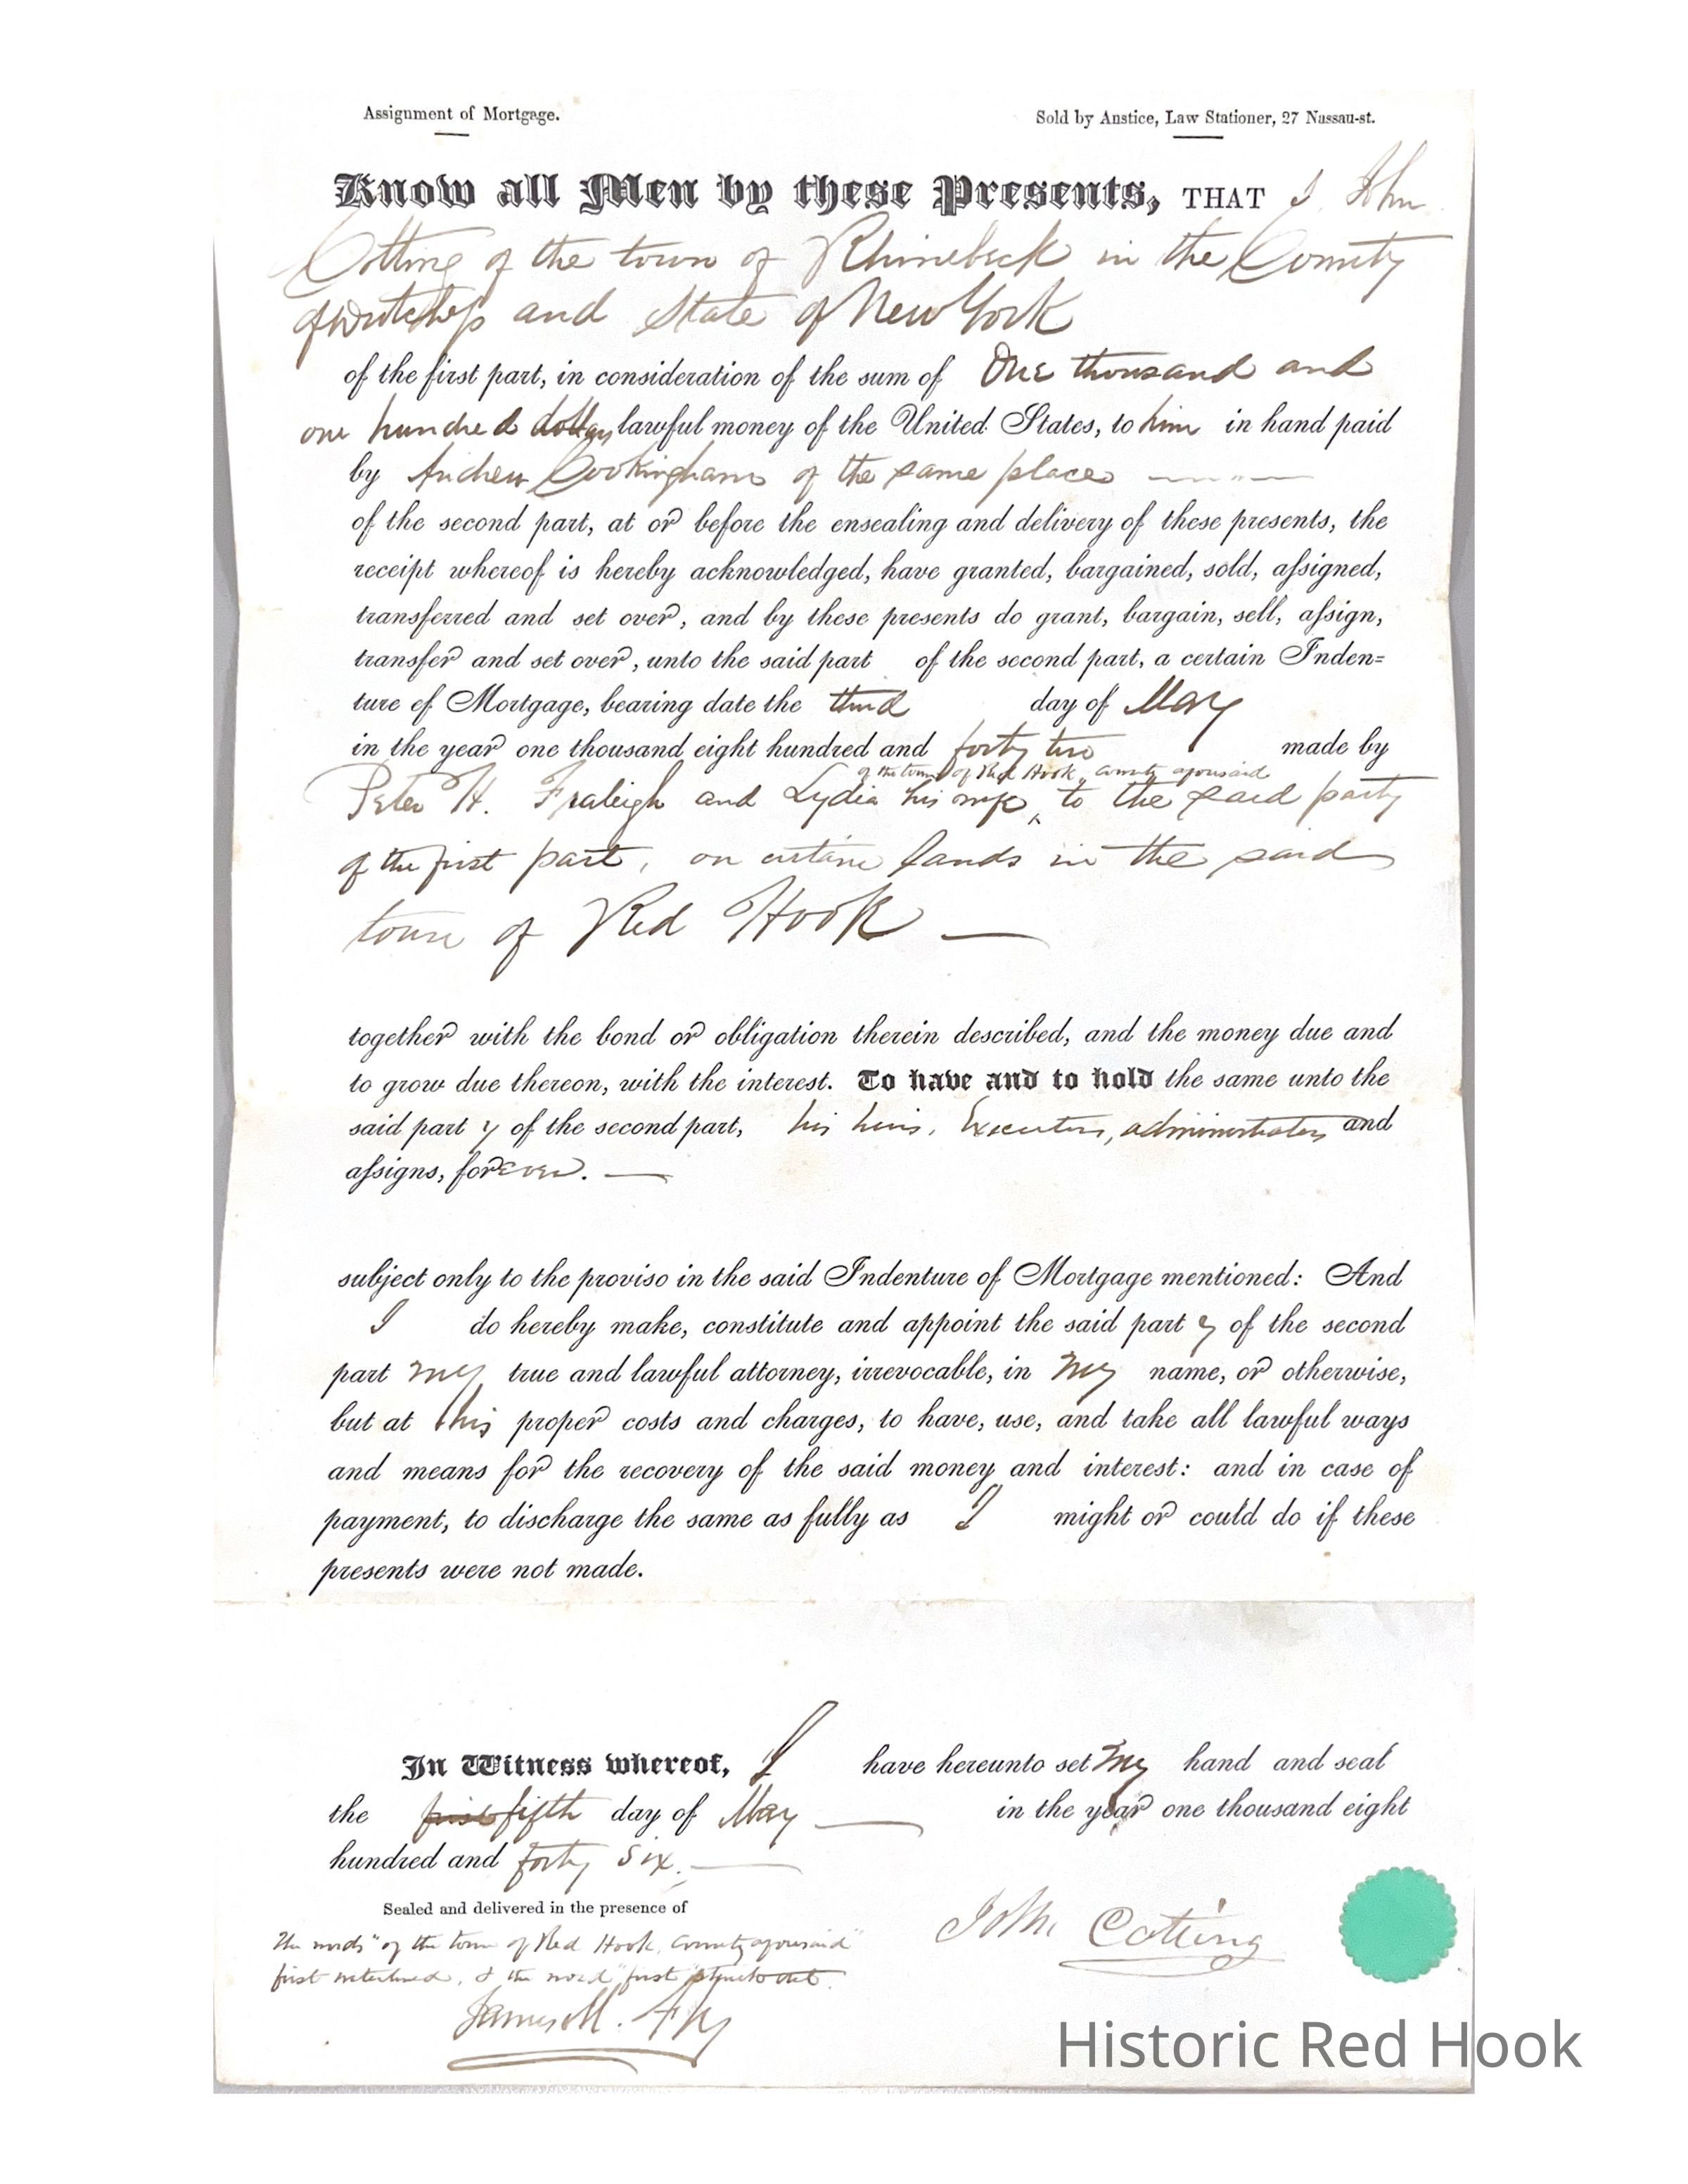 Assignment of Mortgage.
Sold by Anstice, Law Stationer, 27 Nassau-st.
Know all Men by these Presents, THAT I John
Cotting of the town of Rhinebeck in the County
of Dutchess and State of New York
of the first part, in consideration of the sum of One thousand and
one hundred dollars lawful money of the United States, to him in hand paid
by Andrew Cookingham of the same place
of the second part, at or before the ensealing and delivery of these presents, the
receipt whereof is hereby acknowledged, have granted, bargained, sold, assigned,
transferred and set over, and by these presents do grant, bargain, sell, assign,
transfer and set over, unto the said part of the second part, a certain Inden=
ture of Mortgage, bearing date the third day of May
in the year one thousand eight hundred and forty two made by
of the town of Red Hook, County aforesaid
Peter H. Fraleigh and Lydia his wife, ‸ to the said party
of the first part, on certain lands in the said
town of Red Hook —
together with the bond or obligation therein described, and the money due and
to grow due thereon, with the interest. To have and to hold the same unto the
said part y of the second part, his heirs, Executors, administrators and
assigns, forever. —
subject only to the proviso in the said Indenture of Mortgage mentioned: And
I do hereby make, constitute and appoint the said part y of the second
part my true and lawful attorney, irrevocable, in my name, or otherwise,
but at his proper costs and charges, to have, use, and take all lawful ways
and means for the recovery of the said money and interest: and in case of
payment, to discharge the same as fully as I might or could do if these
presents were not made.
In Witness whereof, I have hereunto set my hand and seal
the first fifth day of May — in the year one thousand eight
hundred and forty six. —
Sealed and delivered in the presence of
The words "of the town of Red Hook, County aforesaid"
first interlined, & the word "first" struck out.
John Cotting
James M.
Historic Red Hook